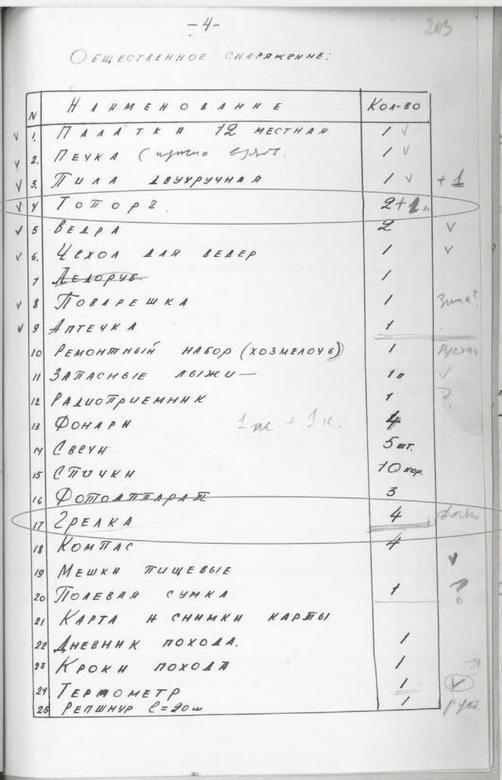 -4-
203
Общественное снаряжение:
N Наименование Кол-во
1. Палатка 12 местная 1
2. Печка ( 1
3. Пила двухручная 1 +1
4 Топор 2+1
5 Ведра 2
6. Чехол для ведер 1
7 Ледоруб 1
8 Поварешка 1 Зина?
9 Аптечка 1
10 Ремонтный набор (хозмелочь) 1
11 Запасные лыжи — 1
12 Радиоприемник 1 ?
13 Фонари 1 + 1к. 4
14 Свечи 5 шт.
15 Спички 10 кор.
16 Фотоаппарат 3
17 Грелка 4
18 Компас 4
19 Мешки пищевые
20 Полевая сумка 1 ?
21 Карта и снимки карты
22 Дневник похода. 1
23 Кроки похода 1
24 Термометр 1
25 Репшнур l=20м 1